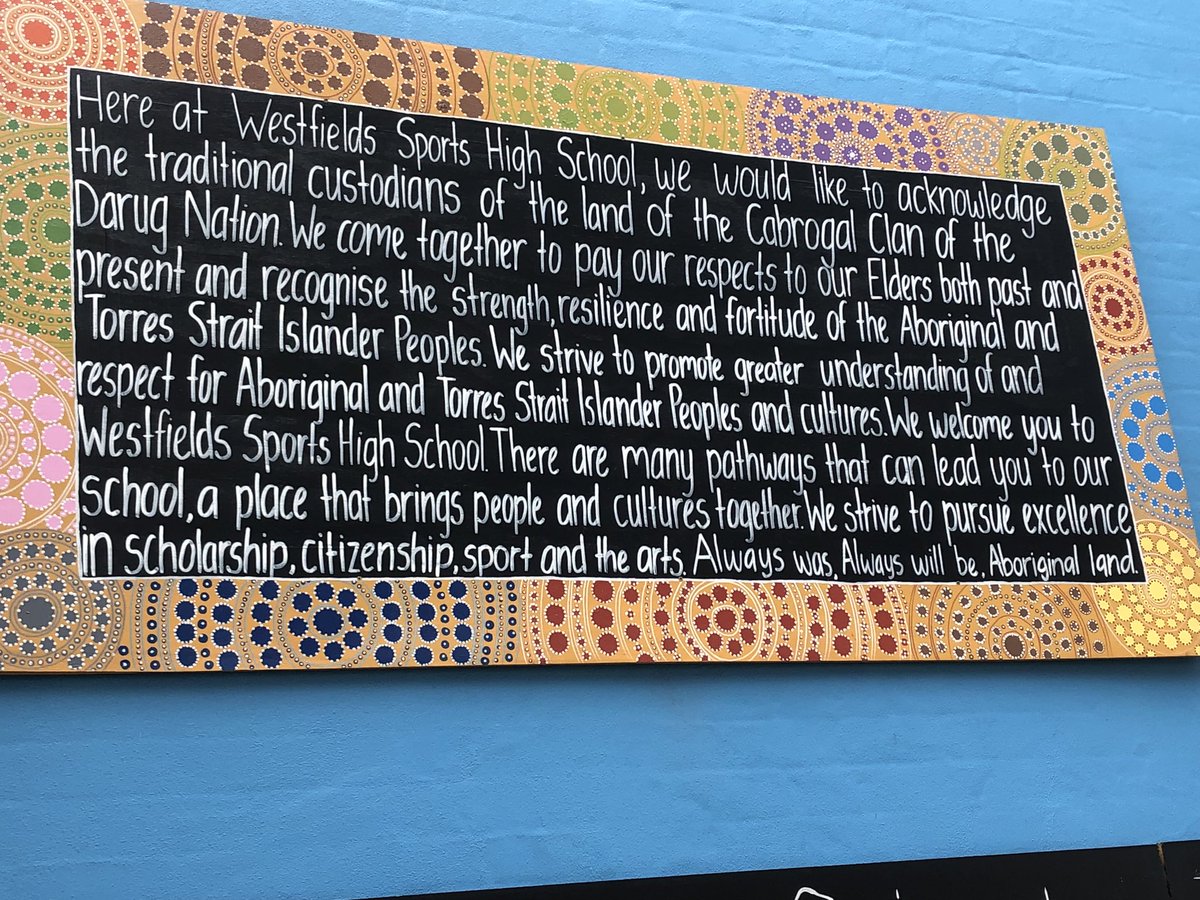 Here at Westfields Sports High School, we would like to acknowledge
the traditional custodians of the land of the Cabrogal Clan of the
Darug Nation. We come together to pay our respects to our Elders both past and
present and recognise the strength, resilience and fortitude of the Aboriginal and
Torres Strait Islander Peoples. We strive to promote greater understanding of and
respect for Aboriginal and Torres Strait Islander Peoples and cultures. We welcome you to
Westfields Sports High School. There are many pathways that can lead you to our
school, a place that brings people and cultures together. We strive to pursue excellence
in scholarship, citizenship, sport and the arts. Always was, Always will be, Aboriginal land.